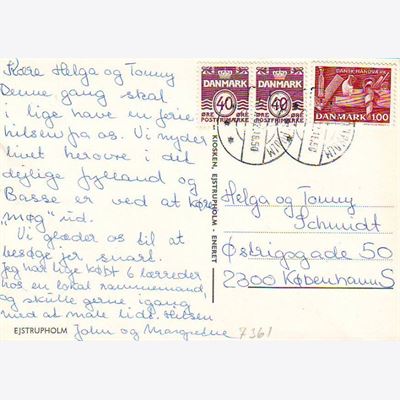 Kære Helga og Tonny
Denne gang skal
I lige have en ferie
hilsen fra os. Vi nyder
livet herovre i det
dejlige Jylland og
Basse er ved at køre
"møg" ud.
Vi glæder os til at
besøge jer snart.
Jeg har lige købt 6 lærreder
hos en lokal rammemand,
og skulle gerne igang
med at male lidt. Hilsen
John og Margrethe
EJSTRUPHOLM
KIOSKEN, EJSTRUPHOLM - ENERET
DANMARK
40
ØRE ØRE
POSTFRIMÆRKE
DANMARK
40
ØRE ØRE
POSTFRIMÆRKE
DANSK HÅNDVÆRK
DANMARK 100
Helga og Tonny
Schmidt
Østrigsgade 50
2300 København S
7361